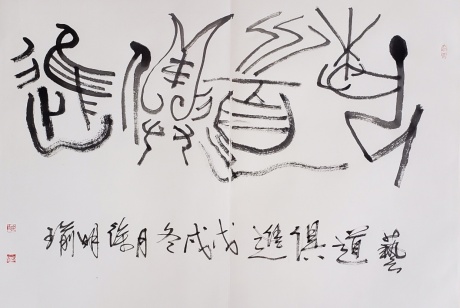 藝道俱進
藝道俱進戊戌冬月徐明瑜